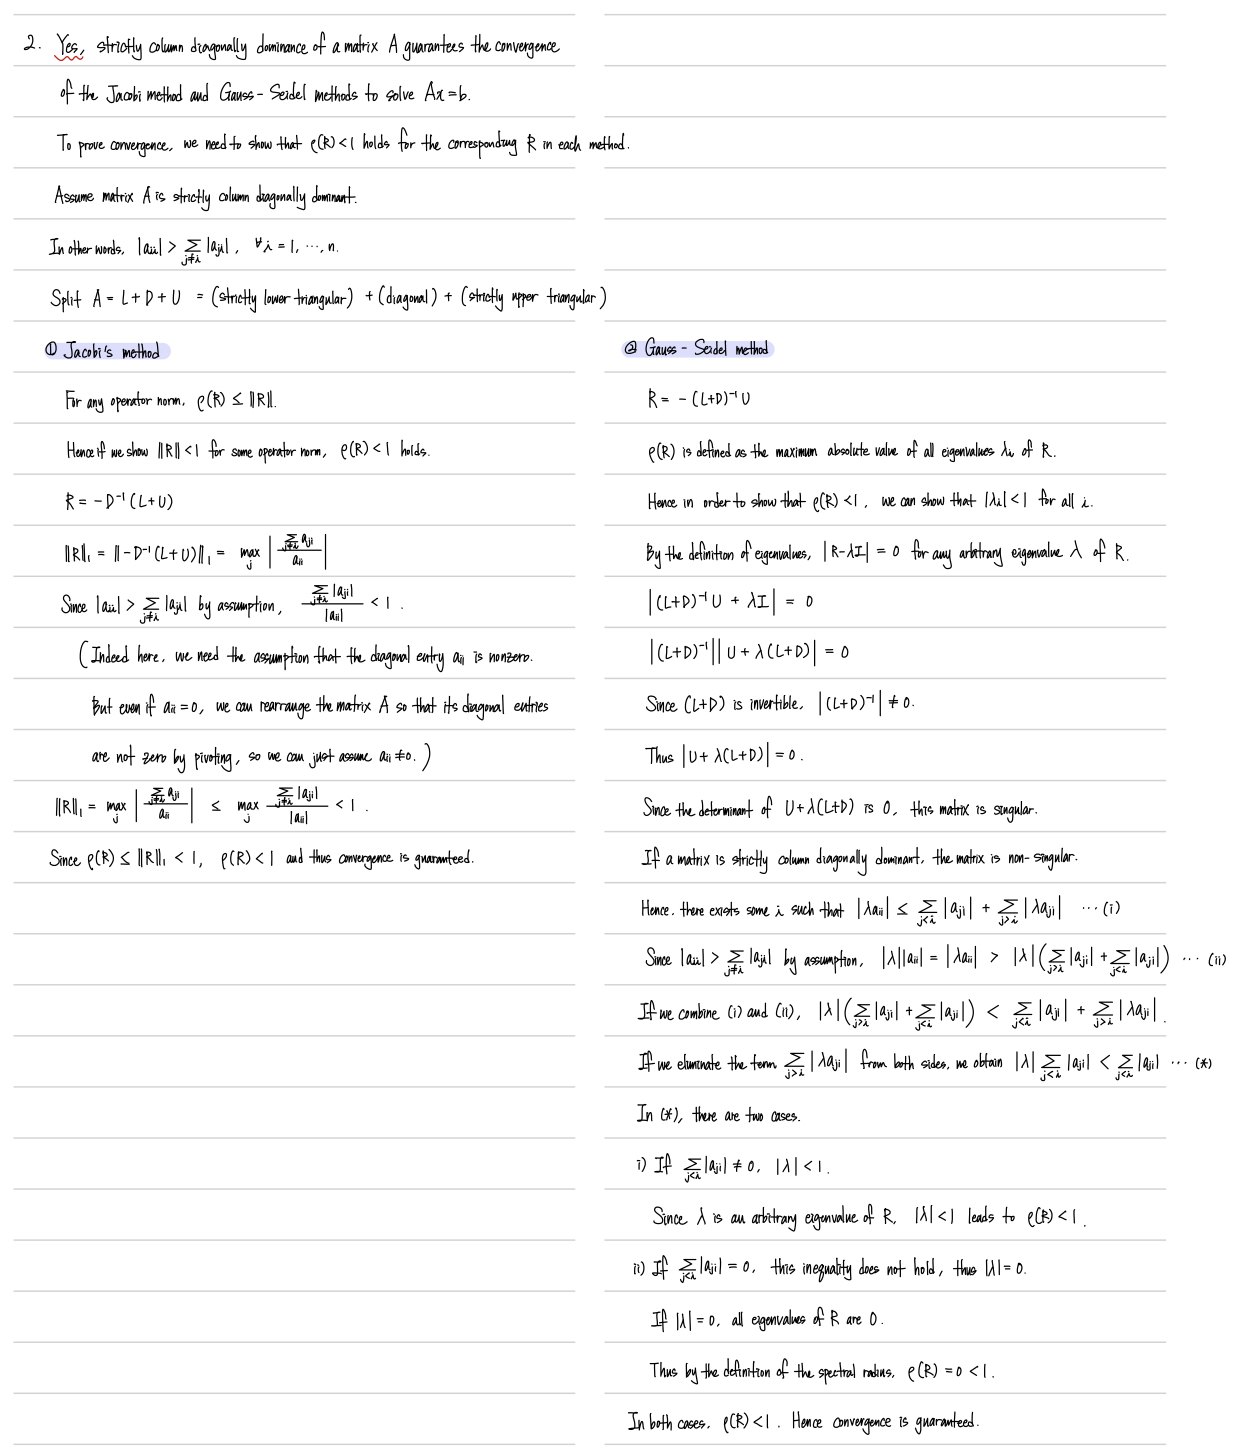 2. Yes, strictly column diagonally dominance of a matrix A guarantees the convergence
of the Jacobi method and Gauss-Seidel methods to solve Ax=b.
To prove convergence, we need to show that ρ(R)<1 holds for the corresponding R in each method.
Assume matrix A is strictly column diagonally dominant.
In other words, |aᵢᵢ| > Σ_{j≠i} |aⱼᵢ|, ∀i = 1, ⋯, n.
Split A = L+D+U = (strictly lower triangular) + (diagonal) + (strictly upper triangular)
① Jacobi's method
For any operator norm, ρ(R) ≤ ‖R‖.
Hence if we show ‖R‖<1 for some operator norm, ρ(R)<1 holds.
R = -D⁻¹(L+U)
‖R‖₁ = ‖-D⁻¹(L+U)‖₁ = max_j |Σ_{j≠i} aⱼᵢ / aᵢᵢ|
Since |aᵢᵢ| > Σ_{j≠i} |aⱼᵢ| by assumption, Σ_{j≠i} |aⱼᵢ| / |aᵢᵢ| < 1.
(Indeed here, we need the assumption that the diagonal entry aᵢᵢ is nonzero.
But even if aᵢᵢ=0, we can rearrange the matrix A so that its diagonal entries
are not zero by pivoting, so we can just assume aᵢᵢ≠0.)
‖R‖₁ = max_j |Σ_{j≠i} aⱼᵢ / aᵢᵢ| ≤ max_j Σ_{j≠i} |aⱼᵢ| / |aᵢᵢ| < 1.
Since ρ(R) ≤ ‖R‖₁ < 1, ρ(R)<1 and thus convergence is guaranteed.
② Gauss-Seidel method
R = -(L+D)⁻¹U
ρ(R) is defined as the maximum absolute value of all eigenvalues λᵢ of R.
Hence in order to show that ρ(R)<1, we can show that |λᵢ|<1 for all i.
By the definition of eigenvalues, |R-λI| = 0 for any arbitrary eigenvalue λ of R.
|(L+D)⁻¹U + λI| = 0
|(L+D)⁻¹||U + λ(L+D)| = 0
Since (L+D) is invertible, |(L+D)⁻¹| ≠ 0.
Thus |U+λ(L+D)| = 0.
Since the determinant of U+λ(L+D) is 0, this matrix is singular.
If a matrix is strictly column diagonally dominant, the matrix is non-singular.
Hence, there exists some i such that |λaᵢᵢ| ≤ Σ_{j<i} |aⱼᵢ| + Σ_{j>i} |λaⱼᵢ| ⋯ (i)
Since |aᵢᵢ| > Σ_{j≠i} |aⱼᵢ| by assumption, |λ||aᵢᵢ| = |λaᵢᵢ| > |λ|(Σ_{j>i} |aⱼᵢ| + Σ_{j<i} |aⱼᵢ|) ⋯ (ii)
If we combine (i) and (ii), |λ|(Σ_{j>i} |aⱼᵢ| + Σ_{j<i} |aⱼᵢ|) < Σ_{j<i} |aⱼᵢ| + Σ_{j>i} |λaⱼᵢ|.
If we eliminate the term Σ_{j>i} |λaⱼᵢ| from both sides, we obtain |λ| Σ_{j<i} |aⱼᵢ| < Σ_{j<i} |aⱼᵢ| ⋯ (*)
In (*), there are two cases.
i) If Σ_{j<i} |aⱼᵢ| ≠ 0, |λ|<1.
Since λ is an arbitrary eigenvalue of R, |λ|<1 leads to ρ(R)<1.
ii) If Σ_{j<i} |aⱼᵢ| = 0, this inequality does not hold, thus |λ| = 0.
If |λ| = 0, all eigenvalues of R are 0.
Thus by the definition of the spectral radius, ρ(R) = 0 < 1.
In both cases, ρ(R)<1. Hence convergence is guaranteed.